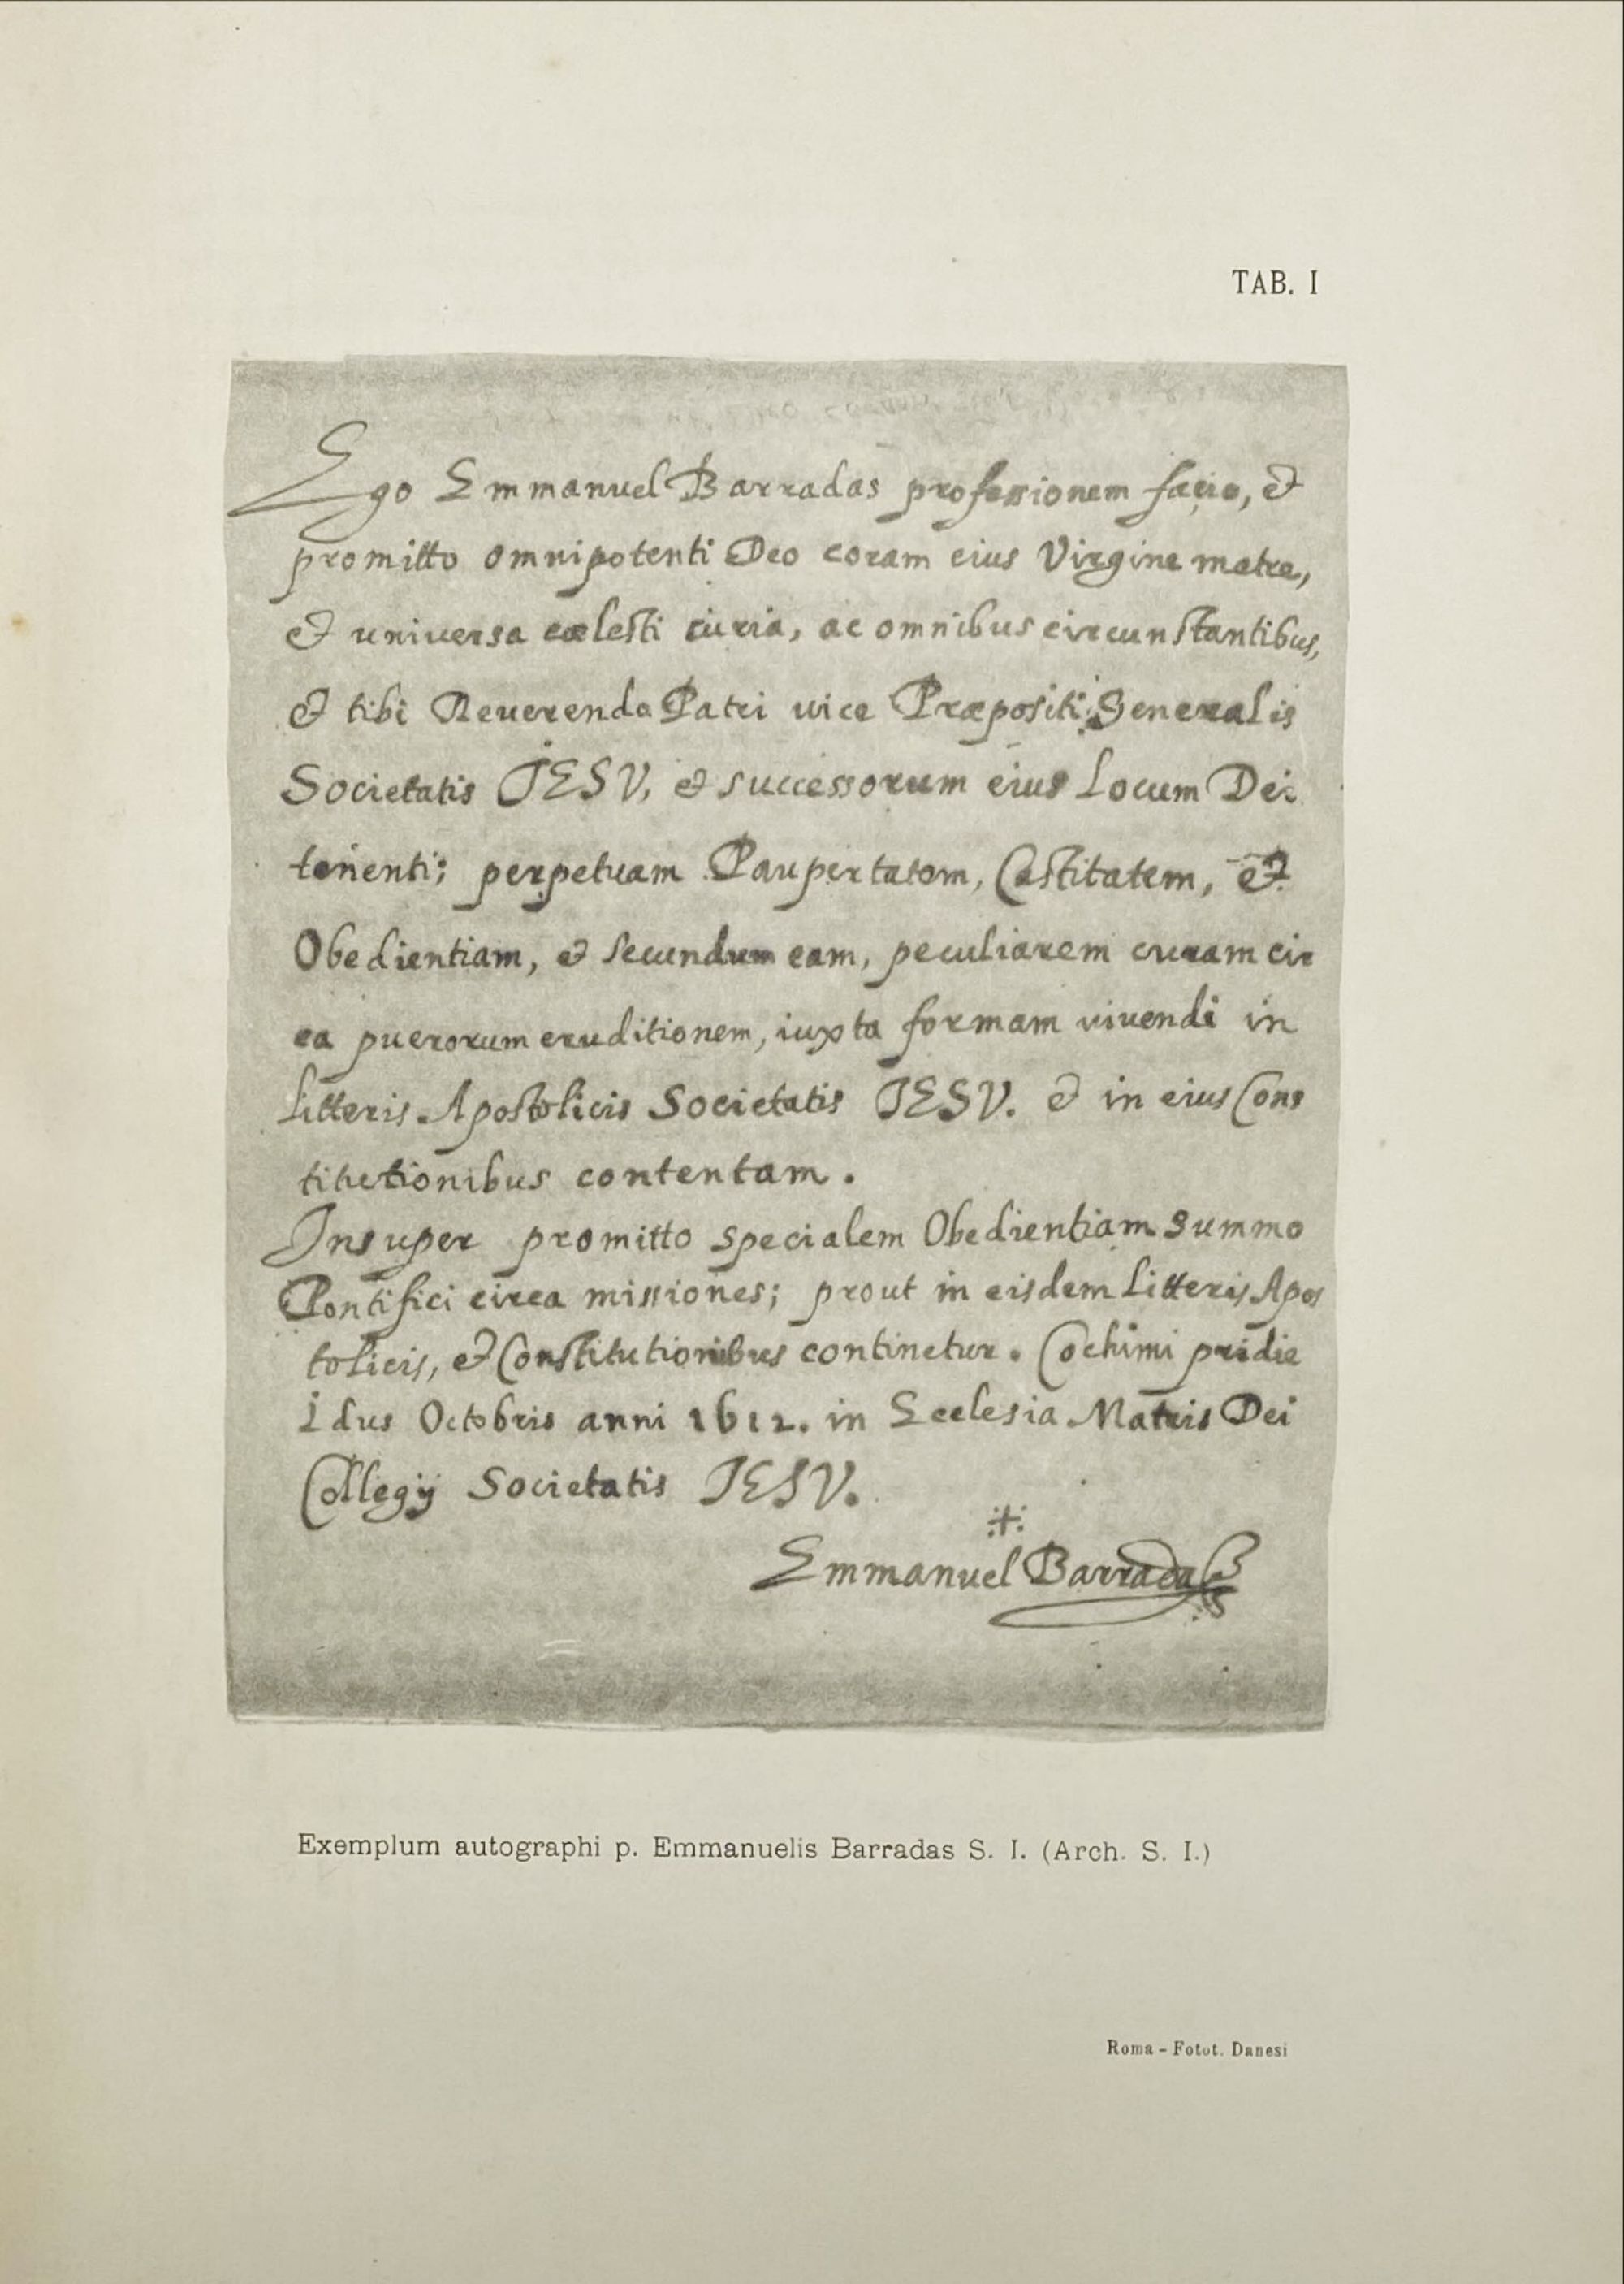 TAB. I
Ego Emmanuel Barradas professionem facio, &
promitto omnipotenti Deo coram eius Virgine matre,
& universa cælesti curia, ac omnibus circunstantibus,
& tibi Reuerendo Patri vice Præpositi Generalis
Societatis IESV, & successorum eius Locum Dei
tenenti; perpetuam Paupertatem, Castitatem, &
Obedientiam, & secundum eam, peculiarem curam cir
ca puerorum eruditionem, iuxta formam viuendi in
Litteris Apostolicis Societatis IESV. & in eius Cons
titutionibus contentam.
Insuper promitto specialem Obedientiam summo
Pontifici circa missiones; prout in eisdem Litteris Apos
tolicis, & Constitutionibus continetur. Cochimi pridie
Idus Octobris anni 1612. in Ecclesia Matris Dei
Collegij Societatis IESV.
Emmanuel Barradas
Exemplum autographi p. Emmanuelis Barradas S. I. (Arch. S. I.)
Roma - Fotot. Danesi